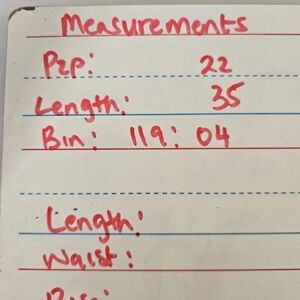 Measurements
P2p: 22
Length: 35
Bin: 119: 04
Length:
Waist: